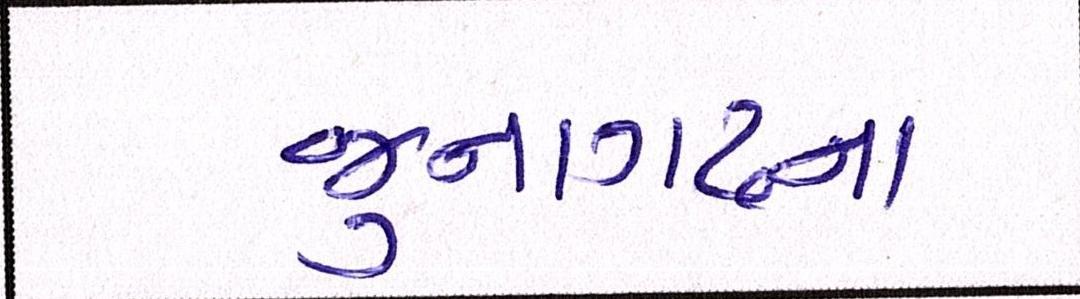 જુનાગઢના